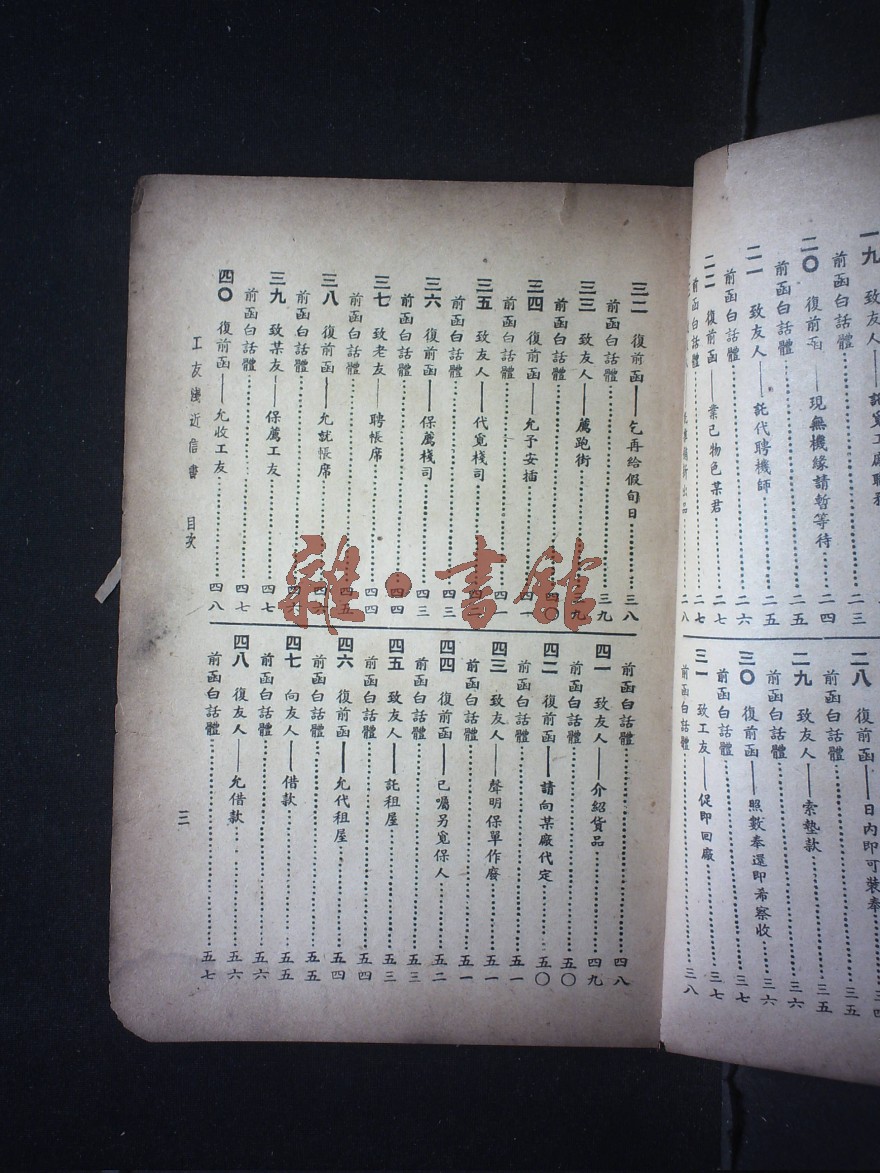 一九　致友人——託覓工廠職
前函白話體……二三
二〇　復前函——現無機緣請暫等待……二四
前函白話體……二五
二一　致友人——託代聘機師……二五
前函白話體……二六
二二　復前函——業已物色某君……二七
前函白話體……二七
二八
二八　復前函——日內即可裝奉……三四
前函白話體……三五
二九　致友人——索墊款……三五
前函白話體……三六
三〇　復前函——照數奉還即希察收……三六
前函白話體……三七
三一　致工友——促即回廠……三七
前函白話體……三八
三二　復前函——乞再給假旬日……三八
前函白話體……三九
三三　致友人——薦跑街……三九
前函白話體……四〇
三四　復前函——允予安插……四一
前函白話體……
三五　致友人——代覓棧司……
前函白話體……四三
三六　復前函——保薦棧司……四三
前函白話體……四四
三七　致老友——聘帳席……四四
前函白話體……四五
三八　復前函——允就帳席……四六
前函白話體……四六
三九　致某友——保薦工友……四七
前函白話體……四七
四〇　復前函——允收工友……四八
前函白話體……四八
四一　致友人——介紹貨品……四九
前函白話體……五〇
四二　復前函——請向某廠代定……五〇
前函白話體……五一
四三　致友人——聲明保單作廢……五一
前函白話體……五一
四四　復前函——已囑另覓保人……五二
前函白話體……五三
四五　致友人——託租屋……五三
前函白話體……五四
四六　復前函——允代租屋……五四
前函白話體……五五
四七　向友人——借款……五五
前函白話體……五六
四八　復友人——允借款……五六
前函白話體……五七
工友淺近信書　目次
三
雜·書館